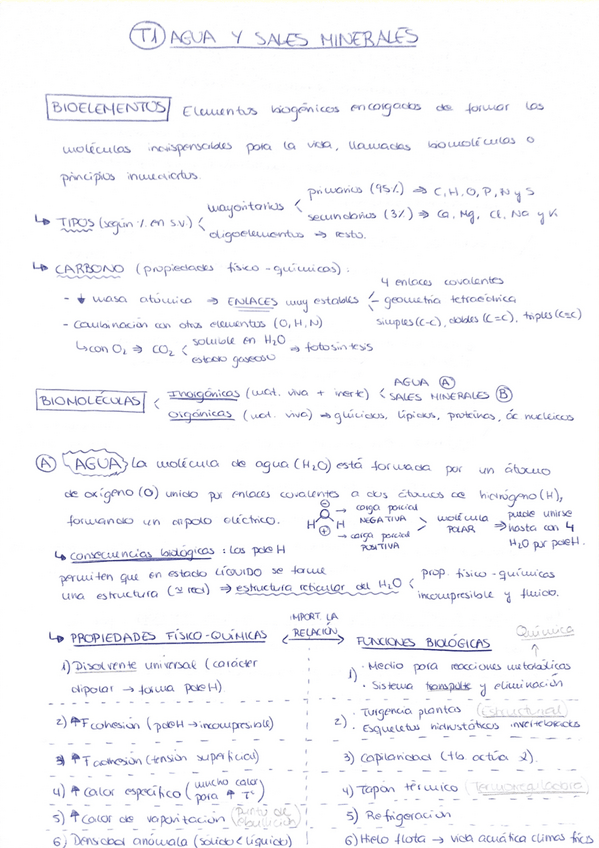 T1 AGUA Y SALES MINERALES
BIOELEMENTOS Elementos biogénicos encargados de formar las
moléculas indispensables para la vida, llamadas biomoléculas o
principios inmediatos.
↳ TIPOS (según % en s.v.) < mayoritarios < primarios (95%) ⇒ C, H, O, P, N y S
secundarios (3%) ⇒ Ca, Mg, Cl, Na y K
oligoelementos ⇒ resto.
↳ CARBONO (propiedades físico-químicas):
- ↓ masa atómica ⇒ ENLACES muy estables < 4 enlaces covalentes
- geometría tetraédrica
simples (C-C), dobles (C=C), triples (C≡C)
- Combinación con otros elementos (O, H, N)
↳ con O₂ ⇒ CO₂ < soluble en H₂O
estado gaseoso ⇒ fotosíntesis
BIOMOLÉCULAS < Inorgánicas (mat. viva + inerte) < AGUA Ⓐ
SALES MINERALES Ⓑ
Orgánicas (mat. viva) ⇒ glúcidos, lípidos, proteínas, ác nucleicos
Ⓐ AGUA La molécula de agua (H₂O) está formada por un átomo
de oxígeno (O) unido por enlaces covalentes a dos átomos de hidrógeno (H),
formando un dipolo eléctrico.
⊖ → carga parcial NEGATIVA
H O H
⊕ → carga parcial POSITIVA
molécula POLAR ⇒ puede unirse hasta con 4 H₂O por puteH.
↳ consecuencias biológicas: los puteH
permiten que en estado LÍQUIDO se forme
una estructura (≃ red) ⇒ estructura reticular del H₂O < prop. físico-químicas
incompresible y fluido.
↳ PROPIEDADES FÍSICO-QUÍMICAS
IMPORT. LA RELACIÓN
FUNCIONES BIOLÓGICAS
Química
1) Disolvente universal (carácter
dipolar → forma puteH)
1) · Medio para reacciones metabólicas
· Sistema transporte y eliminación
2) ↑F cohesión (puteH → incompresible)
2) · Turgencia plantas (Estructural)
· Esqueletos hidrostáticos invertebrados
3) ↑F adhesión (tensión superficial)
3) Capilaridad (tb actúa 2).
4) ↑ calor específico (mucho calor para ↑ Tª)
4) Tapón térmico (Termorreguladora)
5) ↑ calor de vaporización (Punto de ebullición)
5) Refrigeración
6) Densidad anómala (sólido < líquido)
6) Hielo flota → vida acuática climas fríos